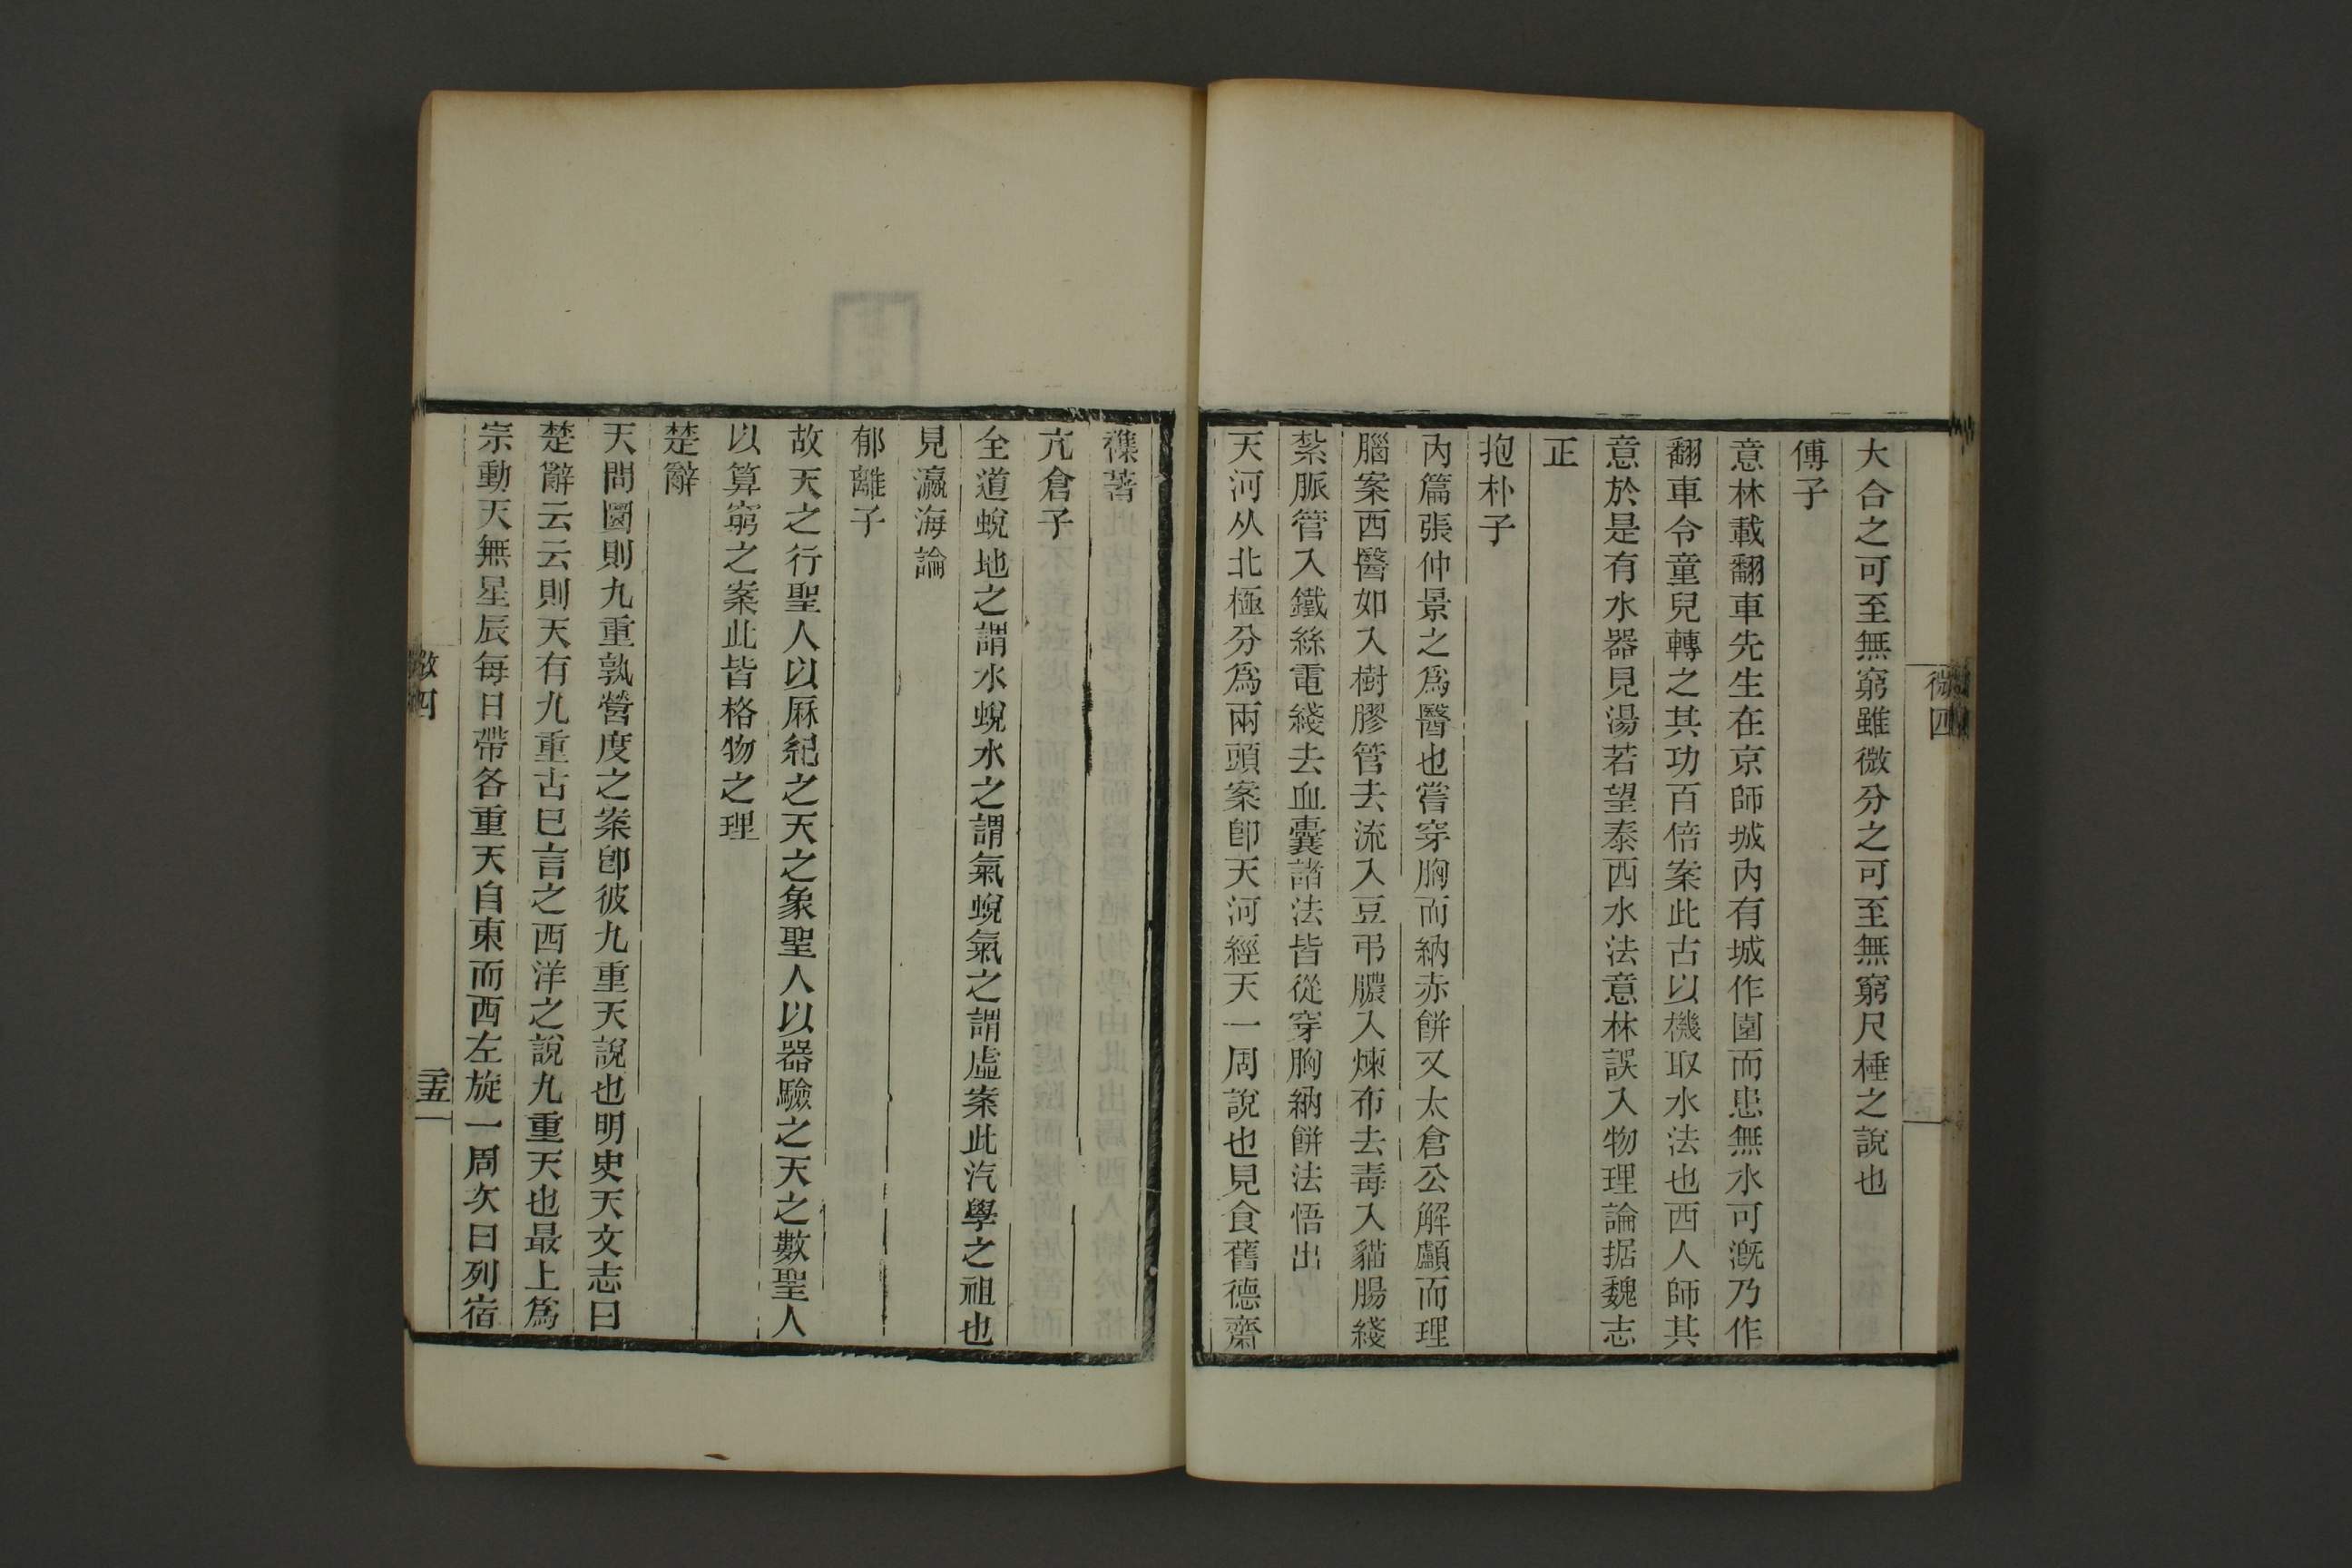 微四
大合之可至無窮雖微分之可至無窮尺棰之說也
傅子
意林載翻車先生在京師城內有城作園而患無水可溉乃作
翻車令童兒轉之其功百倍案此古以機取水法也西人師其
意於是有水器見湯若望泰西水法意林誤入物理論据魏志
正
抱朴子
內篇張仲景之爲醫也嘗穿胸而納赤餅又太倉公解顱而理
腦案西醫如入樹膠管去流入豆弔膿入煉布去毒入貓腸綫
紮脈管入鐵絲電綫去血囊諸法皆從穿胸納餅法悟出
天河从北極分爲兩頭案卽天河經天一周說也見食舊德齋
襍著
亢倉子
全道蛻地之謂水蛻水之謂氣蛻氣之謂虛案此汽學之祖也
見瀛海論
郁離子
故天之行聖人以厤紀之天之象聖人以器驗之天之數聖人
以算窮之案此皆格物之理
楚辭
天問圜則九重孰營度之案卽彼九重天說也明史天文志曰
楚辭云云則天有九重古已言之西洋之說九重天也最上爲
宗動天無星辰每日帶各重天自東而西左旋一周次曰列宿
四
二十五